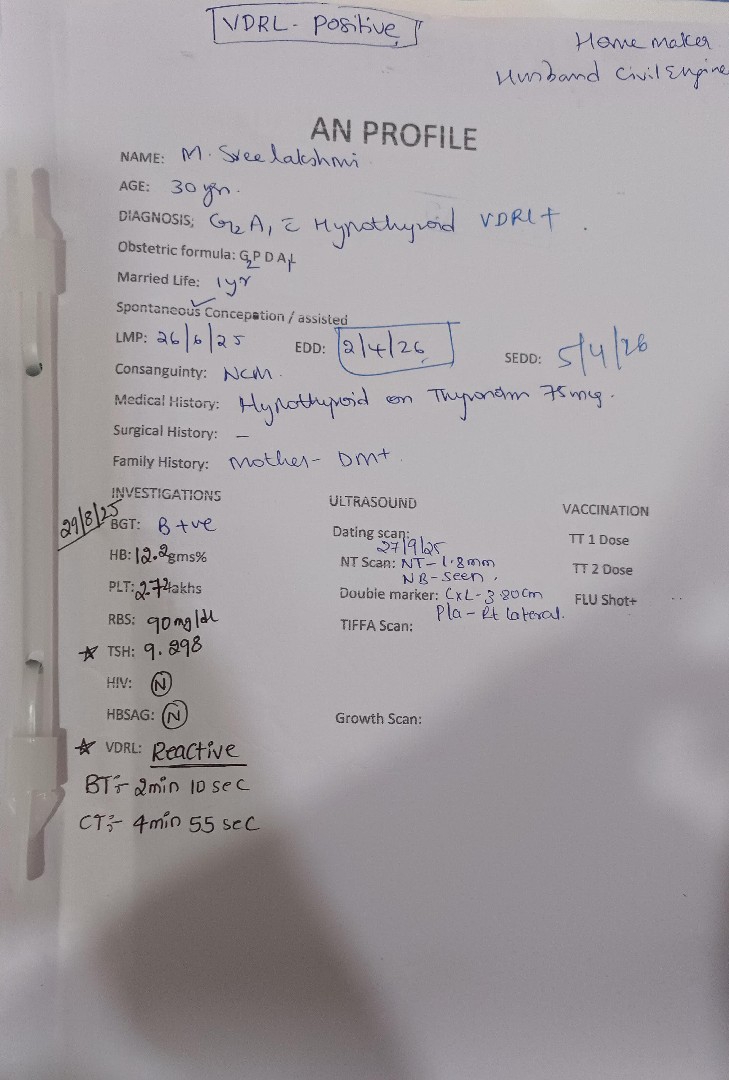 VDRL - Positive
Home maker
Husband Civil Engine
AN PROFILE
NAME: M. Sreelakshmi
AGE: 30 yrs.
DIAGNOSIS: G2 A1 c̄ Hypothyroid VDRL+
Obstetric formula: G2 P D A1
Married Life: 1yr
Spontaneous Conception / assisted
LMP: 26/6/25 EDD: 2/4/26 SEDD: 5/4/26
Consanguinty: NCM.
Medical History: Hypothyroid on Thyronorm 75mcg.
Surgical History: -
Family History: Mother - DM+
INVESTIGATIONS
29/8/25
BGT: B +ve
HB: 12.2gms%
PLT: 2.74lakhs
RBS: 90mg/dl
☆ TSH: 9.298
HIV: N
HBSAG: N
☆ VDRL: Reactive
BT:- 2min 10 sec
CT:- 4min 55 sec
ULTRASOUND
Dating scan:
27/9/25
NT Scan: NT - 1.8mm
NB - seen.
Double marker: CxL - 3.80cm
Pla - Rt lateral.
TIFFA Scan:
Growth Scan:
VACCINATION
TT 1 Dose
TT 2 Dose
FLU Shot+